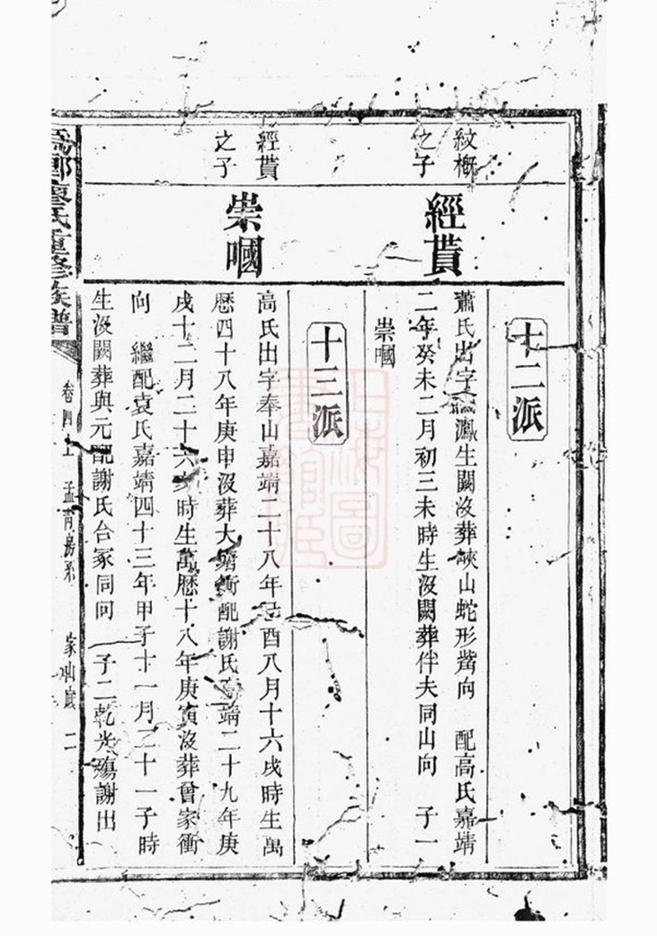 十二派
紋概
之子
經貰
蕭氏出字 鳳生闕沒葬峽山蛇形觜向 配高氏嘉靖
二年癸未二月初三未時生沒闕葬伴夫同山向 子一
崇嘓
十三派
經貰
之子
崇嘓
高氏出字奉山嘉靖二十八年己酉八月十六戌時生萬
曆四十八年庚申沒葬大塘衝配謝氏嘉靖二十九年庚
戌十二月二十六亥時生萬曆十八年庚寅沒葬曾家衝
向 繼配袁氏嘉靖四十三年甲子十一月二十一子時
生沒闕葬與元配謝氏合冢同向 子二乾光殤謝出
廖氏重修族譜
卷四上
房系
二